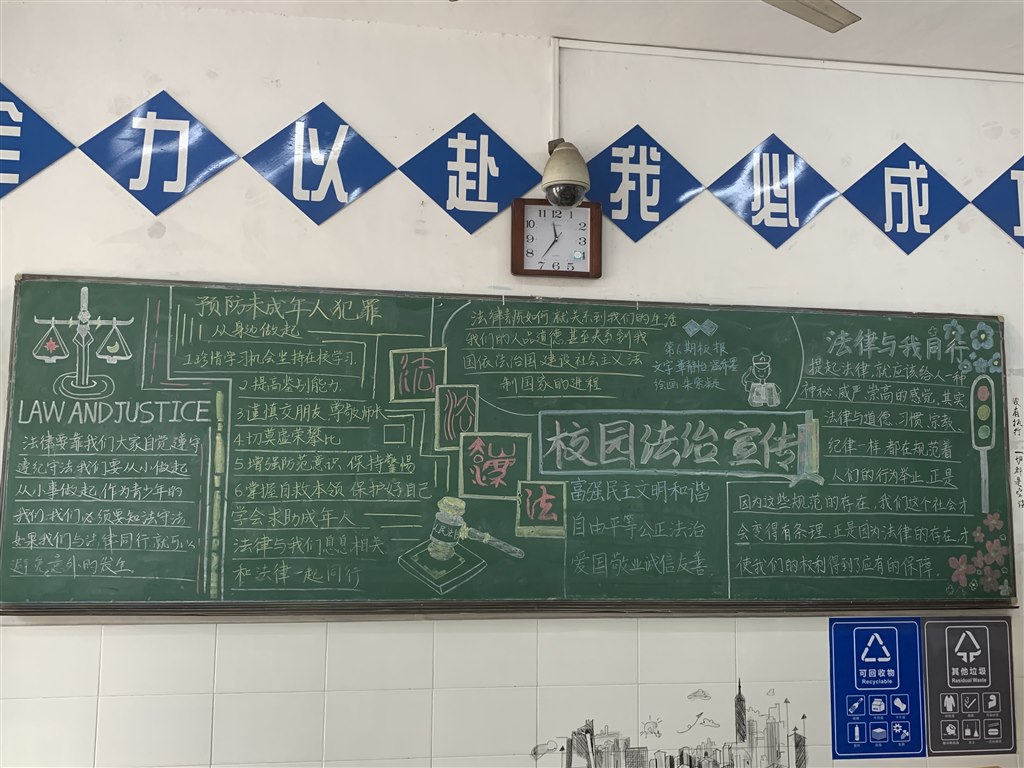 全力以赴我必成
11 12 1
10 2
9 3
8 4
7 6 5
LAW AND JUSTICE
法律要靠我们大家自觉遵守
遵纪守法我们要从小做起
从小事做起作为青少年的
我们我们必须要知法守法
如果我们与法律同行就可以
避免意外的发生
预防未成年人犯罪
从身边做起
1.珍惜学习机会坚持在校学习
2.提高鉴别能力
3.谨慎交朋友 尊敬师长
4.切莫虚荣攀比
5.增强防范意识 保持警惕
6.掌握自救本领 保护好自己
学会求助成年人
法律与我们息息相关
和法律一起同行
法
法
法
法律意识如何就关系到我们的生活
我们的人品道德甚至关系到我
国依法治国建设社会主义法
制国家的进程
第6期板报
校园法治宣传
富强民主文明和谐
自由平等公正法治
爱国敬业诚信友善
法律与我同行
提起法律,就应该给人一种
神秘、威严、崇高的感觉,其实
法律与道德、习惯、宗教、
纪律一样,都在规范着
人们的行为举止,正是
因为这些规范的存在,我们这个社会才
会变得有条理,正是因为法律的存在,才
使我们的权利得到应有的保障.
没有执行
可回收物
Recyclable
其他垃圾
Residual Waste